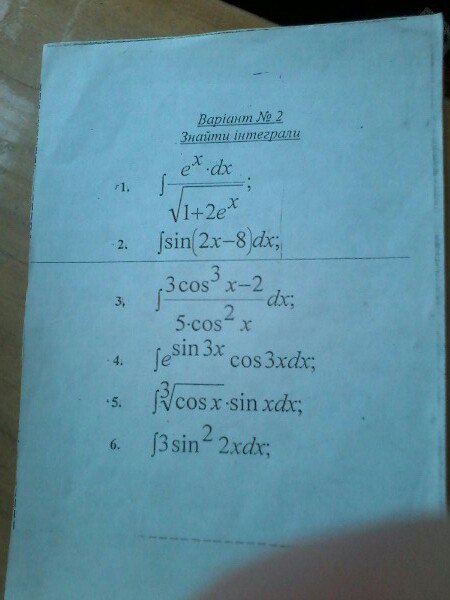 Варіант № 2
Знайти інтеграли
1. ∫ e^x · dx / √(1+2e^x) ;
2. ∫sin(2x−8)dx;
3. ∫ (3cos^3 x−2) / (5·cos^2 x) dx;
4. ∫e^(sin 3x) cos3xdx;
5. ∫∛(cos x)·sin xdx;
6. ∫3sin^2 2xdx;